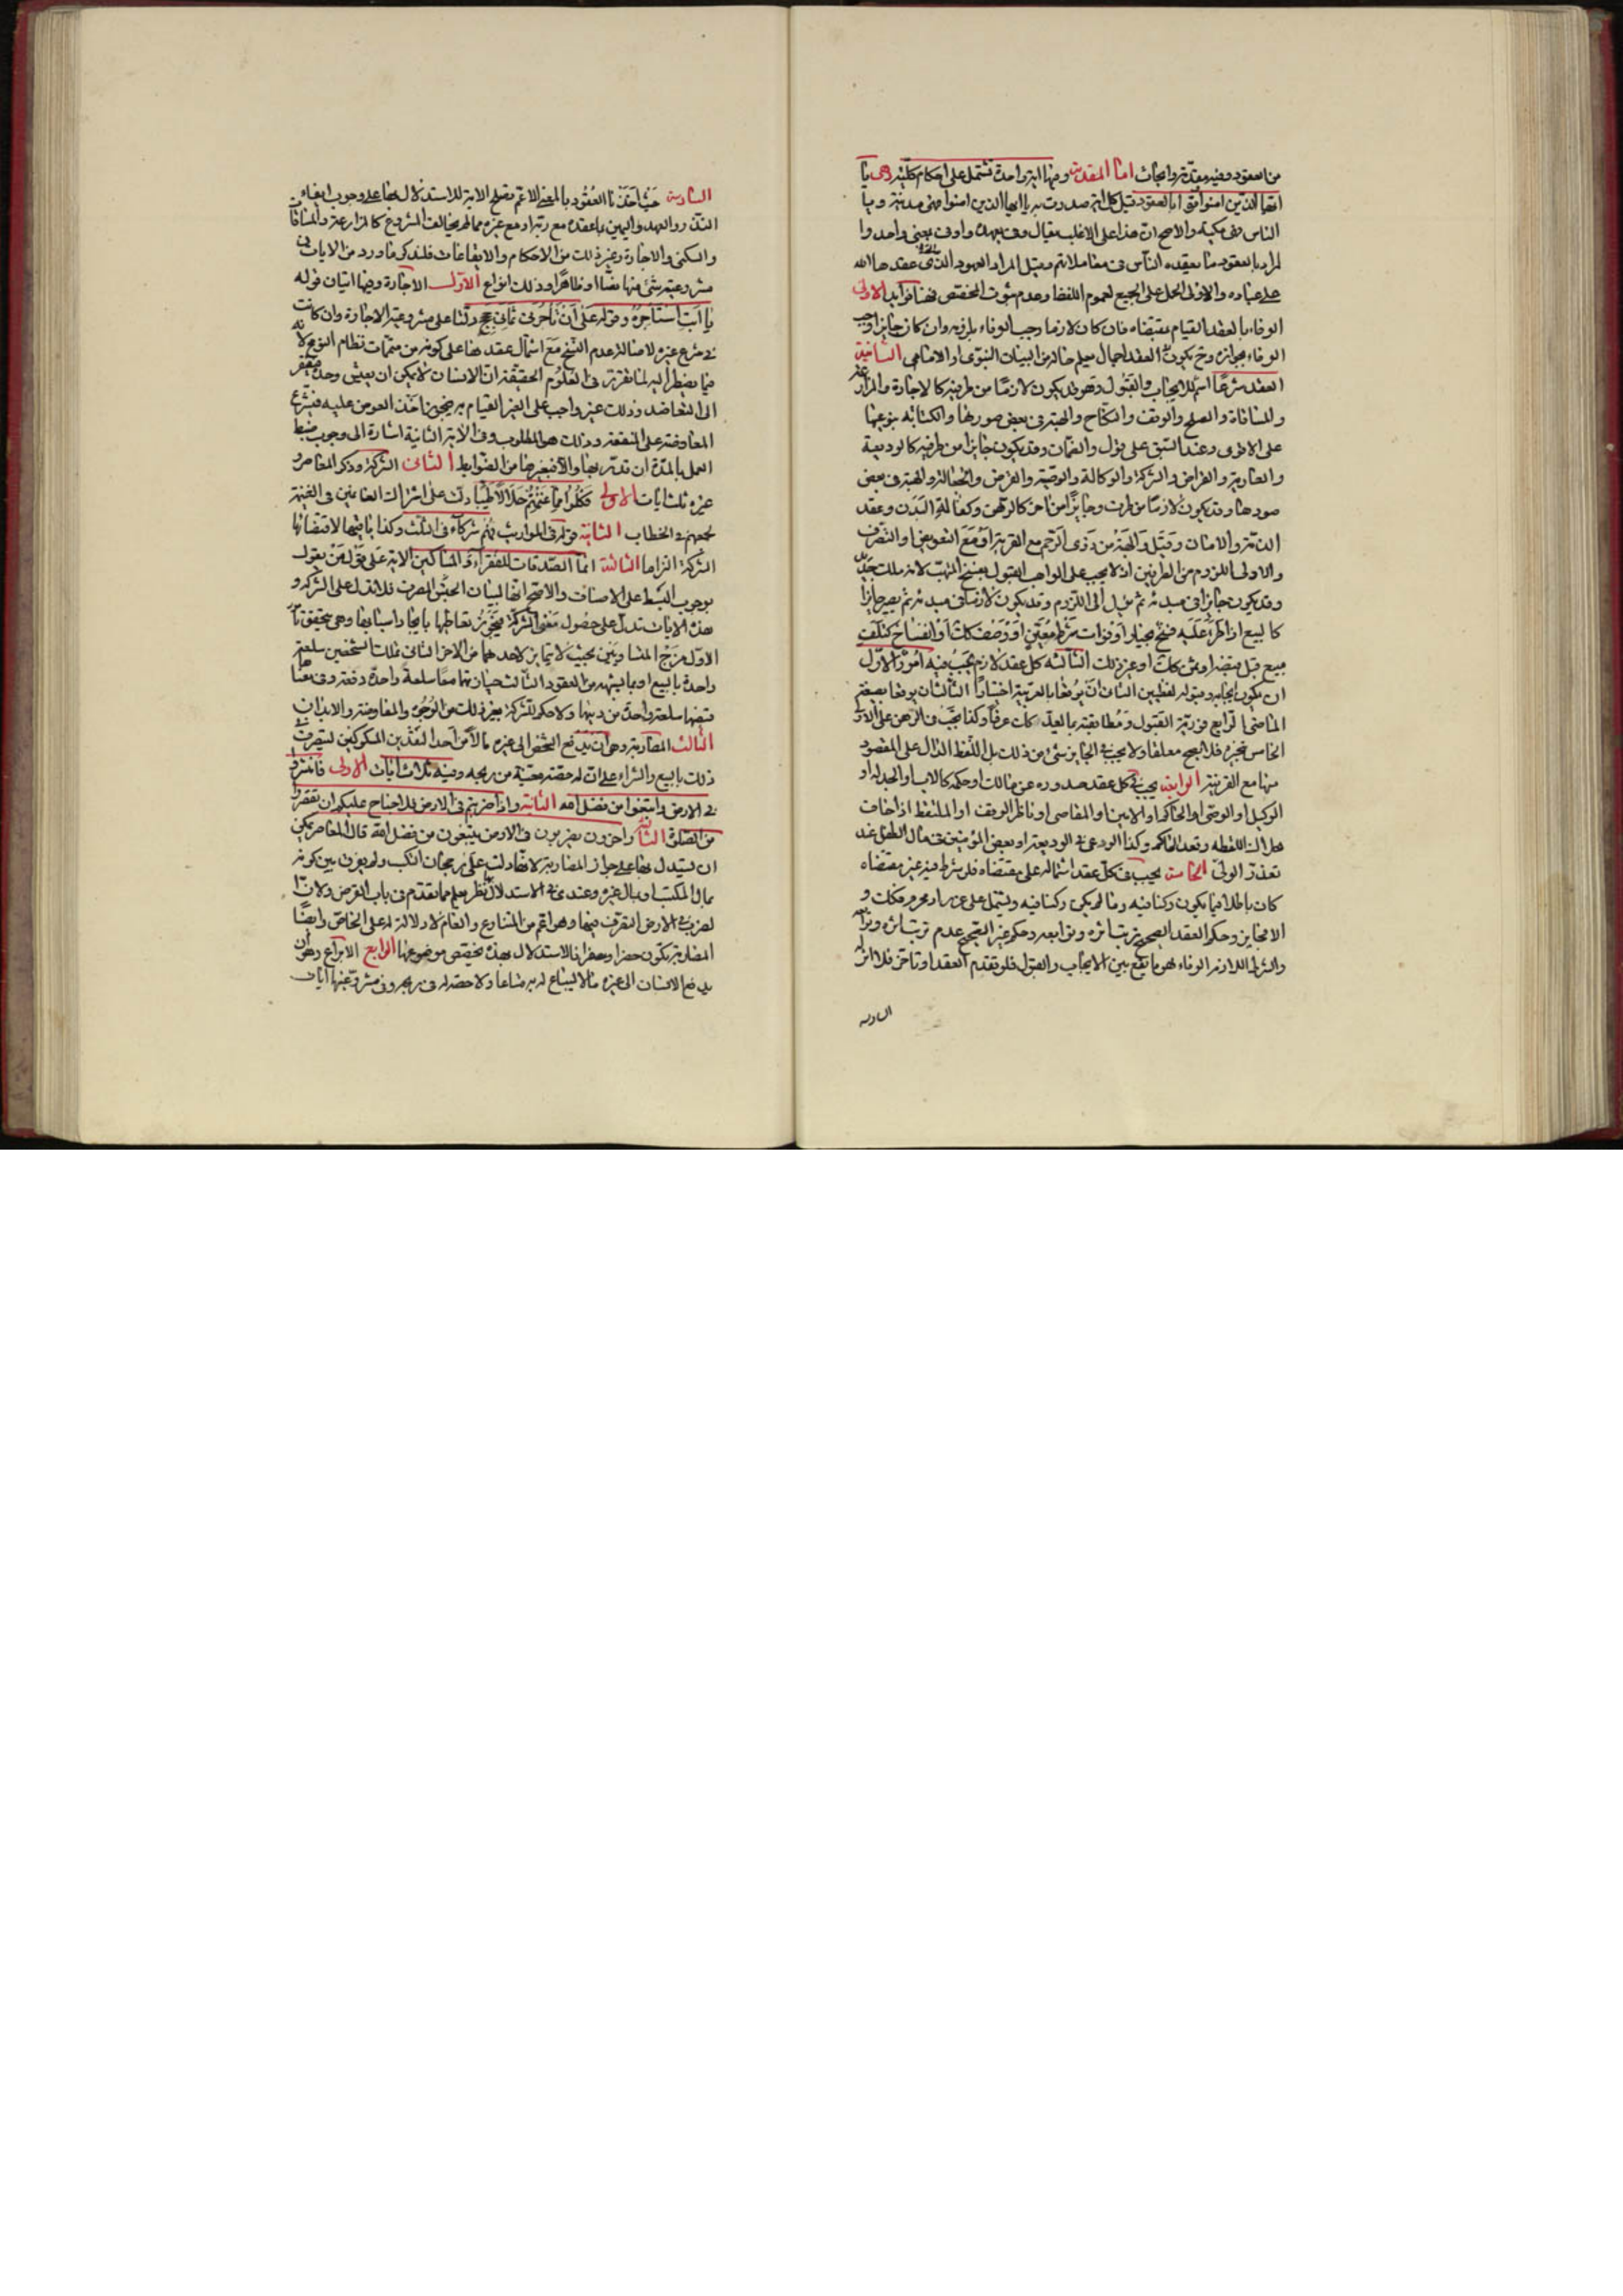 من العقود وفيه مقدّمة وابحاث امّا المقدمة وفيها اية واحدة تشتمل على احكام كلّية وهى يا
ايّها الذين امنوا اوفوا بالعقود قيل كل اية صدرت بيا ايها الذين امنوا فهى مدنية وبيا
الناس فهى مكية والاصح انّ هذا على الاغلب يقال وفى بعهده واوفى بمعنى واحد وا
لمراد بالعقود ما يعقده النّاس فى معاملاتهم وقيل المراد العهود الّتى عقدها الله
على عباده والاولى الحمل على الجميع لعموم اللفظ وعدم ثبوت المخصّص فهنا فوايد الاولى
الوفاء بالعقد القيام بمقتضاه فان كان لازما وجب الوفاء بلزومه وان كان جايزا وجب
الوفاء بجوازه وح يكون فى العقد اجمال يعلم حاله من البيان النبوّى او الامامى الثانية
العقد شرعًا اسم للايجاب والقبول وهو قد يكون لازمًا من طرفيه كالاجارة والمزارعة
والمساقاة والصلح والوقف والنكاح والهبة فى بعض صورها والكتابة بنوعيها
على الاقوى وعند السّبق على قول والضمان وقد يكون جايزا من طرفيه كالوديعة
والعارية والقراض والشركة والوكالة والوصيّة والقرض والجعالة والهبة فى بعض
صورها وقد يكون لازمًا من طرف وجايزًا من اخر كالرّهن وكفالة البدن وعقد
الذمّة والامان وقيل والهبة من ذوى الرّحم مع القربة او مع التعويض او التصرّف
والاولى اللزوم من الطرفين اذ لا يجب على الواهب القبول بفسخ المتّهب لانه ملك جديد
وقد يكون جايزا فى مبدئه ثم يؤل الى اللزوم وقد يكون لازمًا فى مبدئه ثم يصير جايزًا
كالبيع اذا طرء عليه فسخ بخيار او فوات شرط معيّن او وصف كان او انفساخ كتلف
مبيع قبل قبضه او ثمن كان او غير ذلك الثالثة كل عقد لازم يجب فيه امور الاوّل
ان يكون ايجابه وقبوله لفظيين الثانى ان يوقعا بالعربية اختيارًا الثالث ان يوقعا بصيغة
الماضى الرابع فورية القبول ومطابقته بما يعدّ كان عرفًا وكذا يجب فى الرهن على الاقوى
الخامس تنجيزه فلا يصح معلقا ولا يجب فى الجايز شئ من ذلك بل اللّفظ الدّال على المقصود
منها مع القرينة الرابعة يجب فى كل عقد صدوره عن مالك او حكمه كالاب او الجد له او
الوكيل او الوصىّ او الحاكم او الامين او المقاصى او ناظر الوقف او الملتقط اذا خاف
هلاك اللقطة وتعذّر الحاكم وكذا الودعى فى الوديعة او بعض المؤمنين فى مال الطفل عند
تعذّر الولىّ الخامسة يجب فى كلّ عقد اشتماله على مقتضاه فلو شرط فيه غير مقتضاه
كان باطلا فيما يكون ركنا فيه وما لم يكن ركنا فيه ويشتمل على غرر او محرم فكذلك و
الا فجايز وحكم العقد الصحيح ترتب اثره وتوابعه وحكم غير الصّحيح عدم ترتب اثره وتوابعه
والشرط اللازم الوفاء به هو ما يقع بين الايجاب والقبول فلو تقدم العقد او تاخر فلا اثر له
السادسة
السّادسة حيث اخذنا العقود بالمعنى الاعم تصلح الاية للاستدلال بها على وجوب ايفاء
النذر والعهد واليمين بما عقده مع ربّه او مع غيره ممّا لم يخالف المشروع كالمزارعة والمساقاة
والسكنى والاجارة وغير ذلك من الاحكام والايقاعات فلنذكر ما ورد من الايات فى
مشروعية شئ منها نصًّا او ظاهرًا وذلك انواع الاوّل الاجارة وفيها ايتان قوله
يا ابت استأجره وقوله على ان تأجرنى ثمانى حجج دلّتا على مشروعية الاجارة وان كانت
فى شرع غيره لاصالة عدم النسخ مع اشتمال عقدها على كونه من متممات نظام النوع لانه
ممّا يضطر اليه لما تقرّر فى العلوم الحقيقية انّ الانسان لا يمكن ان يعيش وحده فيفتقر
الى التعاضد وذلك غير واجب على الغير القيام به فيجوز اخذ العوض عليه فتشرع
المعاوضة على المنفعة وذلك هو المطلوب وفى الاية الثانية اشارة الى وجوب ضبط
العمل بالمدّة ان قدّر بها والّا فبغيرها من الضّوابط الثانى الشركة وذكر المعاصر و
غيره ثلث ايات الاولى فكلوا ممّا غنمتم حلالا طيّبًا دلّت على اشتراك الغانمين فى الغنيمة
لجمعهم فى الخطاب الثانية قوله فى المواريث فهم شركآء فى الثلث وكذا باقيها لاقتضائها
الشركة التزاما الثالثة انّما الصّدقات للفقرآء والمساكين الاية على قول من يقول
بوجوب البسط على الاصناف والاصح انّها لبيان المصرف فلا تدل على الشركة و
هذه الايات تدلّ على حصول معنى الشركة فيجوز تعاطيها بايجاد اسبابها وهى تتحقق بامور
الاوّل مزج المتساويين بحيث لا يتمايز لاحدهما من الاخر الثانى تملك الشخصين سلعة
واحدة بالبيع او بما يشبهه من العقود الثالث حيازتهما معًا سلعة واحدة دفعة وفى معنا
قبضهما سلعة واحدة من دينهما ولا حكم للشركة بغير ذلك من الوجوه والمفاوضة والابدان
الثالث المضاربة وهى ان يدفع الشخص الى غيره مالا من احد النقدين المسكوكين ليتصرف فى
ذلك بالبيع والشراء على انّ له حصّة معيّنة من ربحه وفيه ثلاث ايات الاولى فانتشروا
فى الارض وابتغوا من فضل الله الثانية واذا ضربتم فى الارض فلا جناح عليكم ان تقصروا
من الصّلوة الثالثة واخرون يضربون فى الارض يبتغون من فضل الله قال المعاصر يمكن
ان يستدل بها على جواز المضاربة لانّها دلت على رجحان التكسب ولم يفرق بين كونه
بمال المكتسب او بمال غيره وعندى فى الاستدلال نظر يعلم مما تقدم فى باب القرض ولانّ ا
لضرب فى الارض التصرف فيها وهو اعم من المتنازع والعام لا دلالة له على الخاصّ وايضًا
المضاربة تكون حضرا وسفرا فالاستدلال بهذه يخصّص موضوعها الرابع الابضاع وهو ان
يدفع الانسان الى غيره مالا ليبتاع له به متاعا ولا حصة له فى ربحه وفى مشروعيّتها ايات